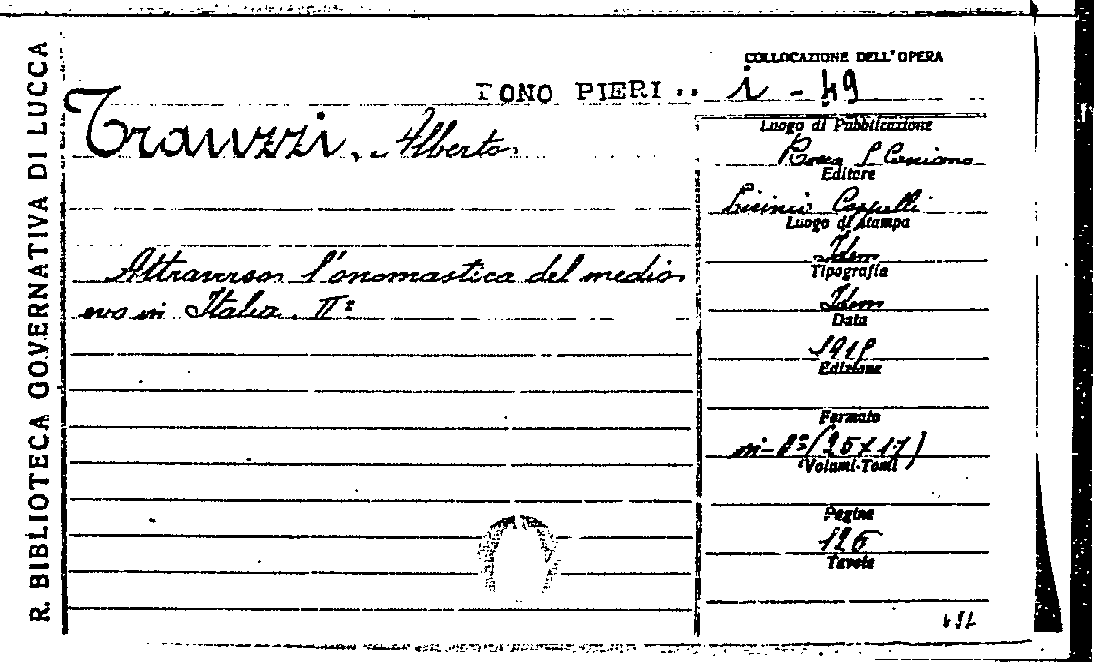 R. BIBLIOTECA GOVERNATIVA DI LUCCA
FONO PIERI..
Trauzzi, Alberto
Attraverso l'onomastica del medio
evo in Italia. IIº
COLLOCAZIONE DELL'OPERA
i - 49
Luogo di Pubblicazione
Rocca S. Casciano
Editore
Licinio Cappelli
Luogo di Stampa
Idem
Tipografia
Idem
Data
Edizione
Formato
in-8º (25 x 17)
Volumi-Tomi
Pagine
126
Tavole